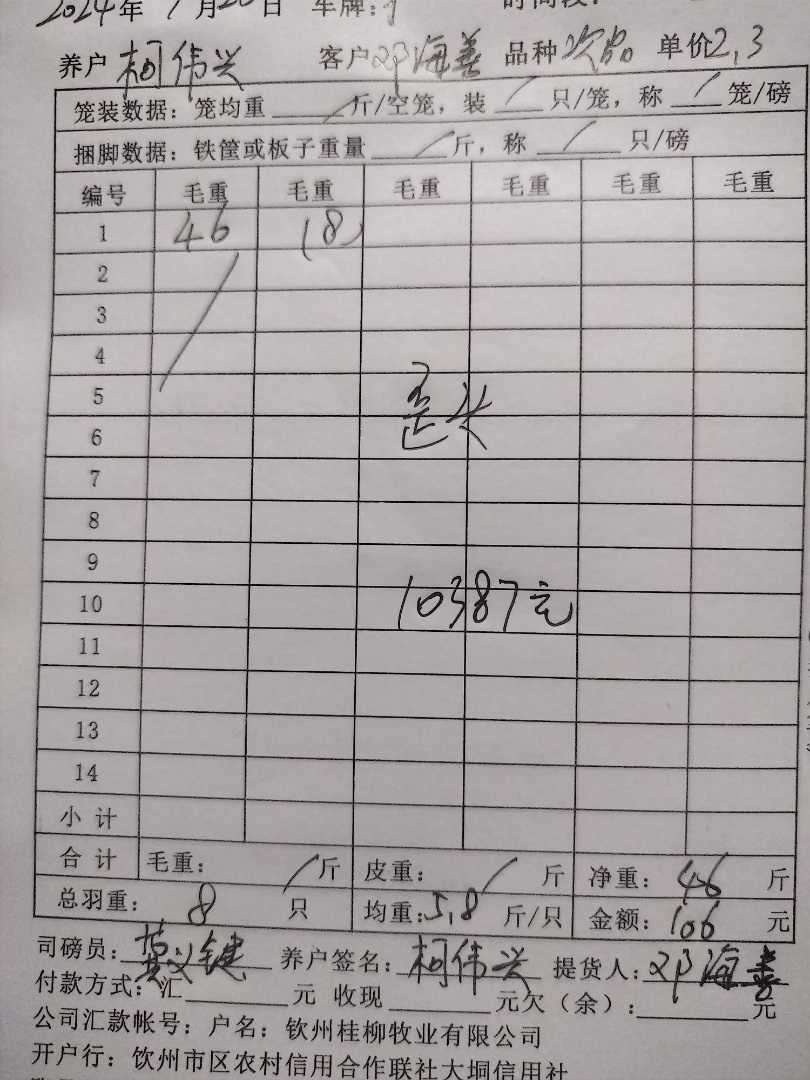 2024年 月20日 车牌:
养户 柯伟兴 客户邓海善 品种次品 单价2,3
笼装数据：笼均重 / 斤/空笼，装 / 只/笼，称 / 笼/磅
捆脚数据：铁筐或板子重量 / 斤，称 / 只/磅
编号 毛重 毛重 毛重 毛重 毛重 毛重
1 46 (8)
2
3
4
5
歪头
6
7
8
9
10 10387元
11
12
13
14
小计
合计 毛重： / 斤 皮重： / 斤 净重：46 斤
总羽重： 8 只 均重:5,8 斤/只 金额：106 元
司磅员: 养户签名：柯伟兴 提货人：邓海善
付款方式：汇 元 收现 元欠（余）： 元
公司汇款帐号：户名：钦州桂柳牧业有限公司
开户行：钦州市区农村信用合作联社大垌信用社